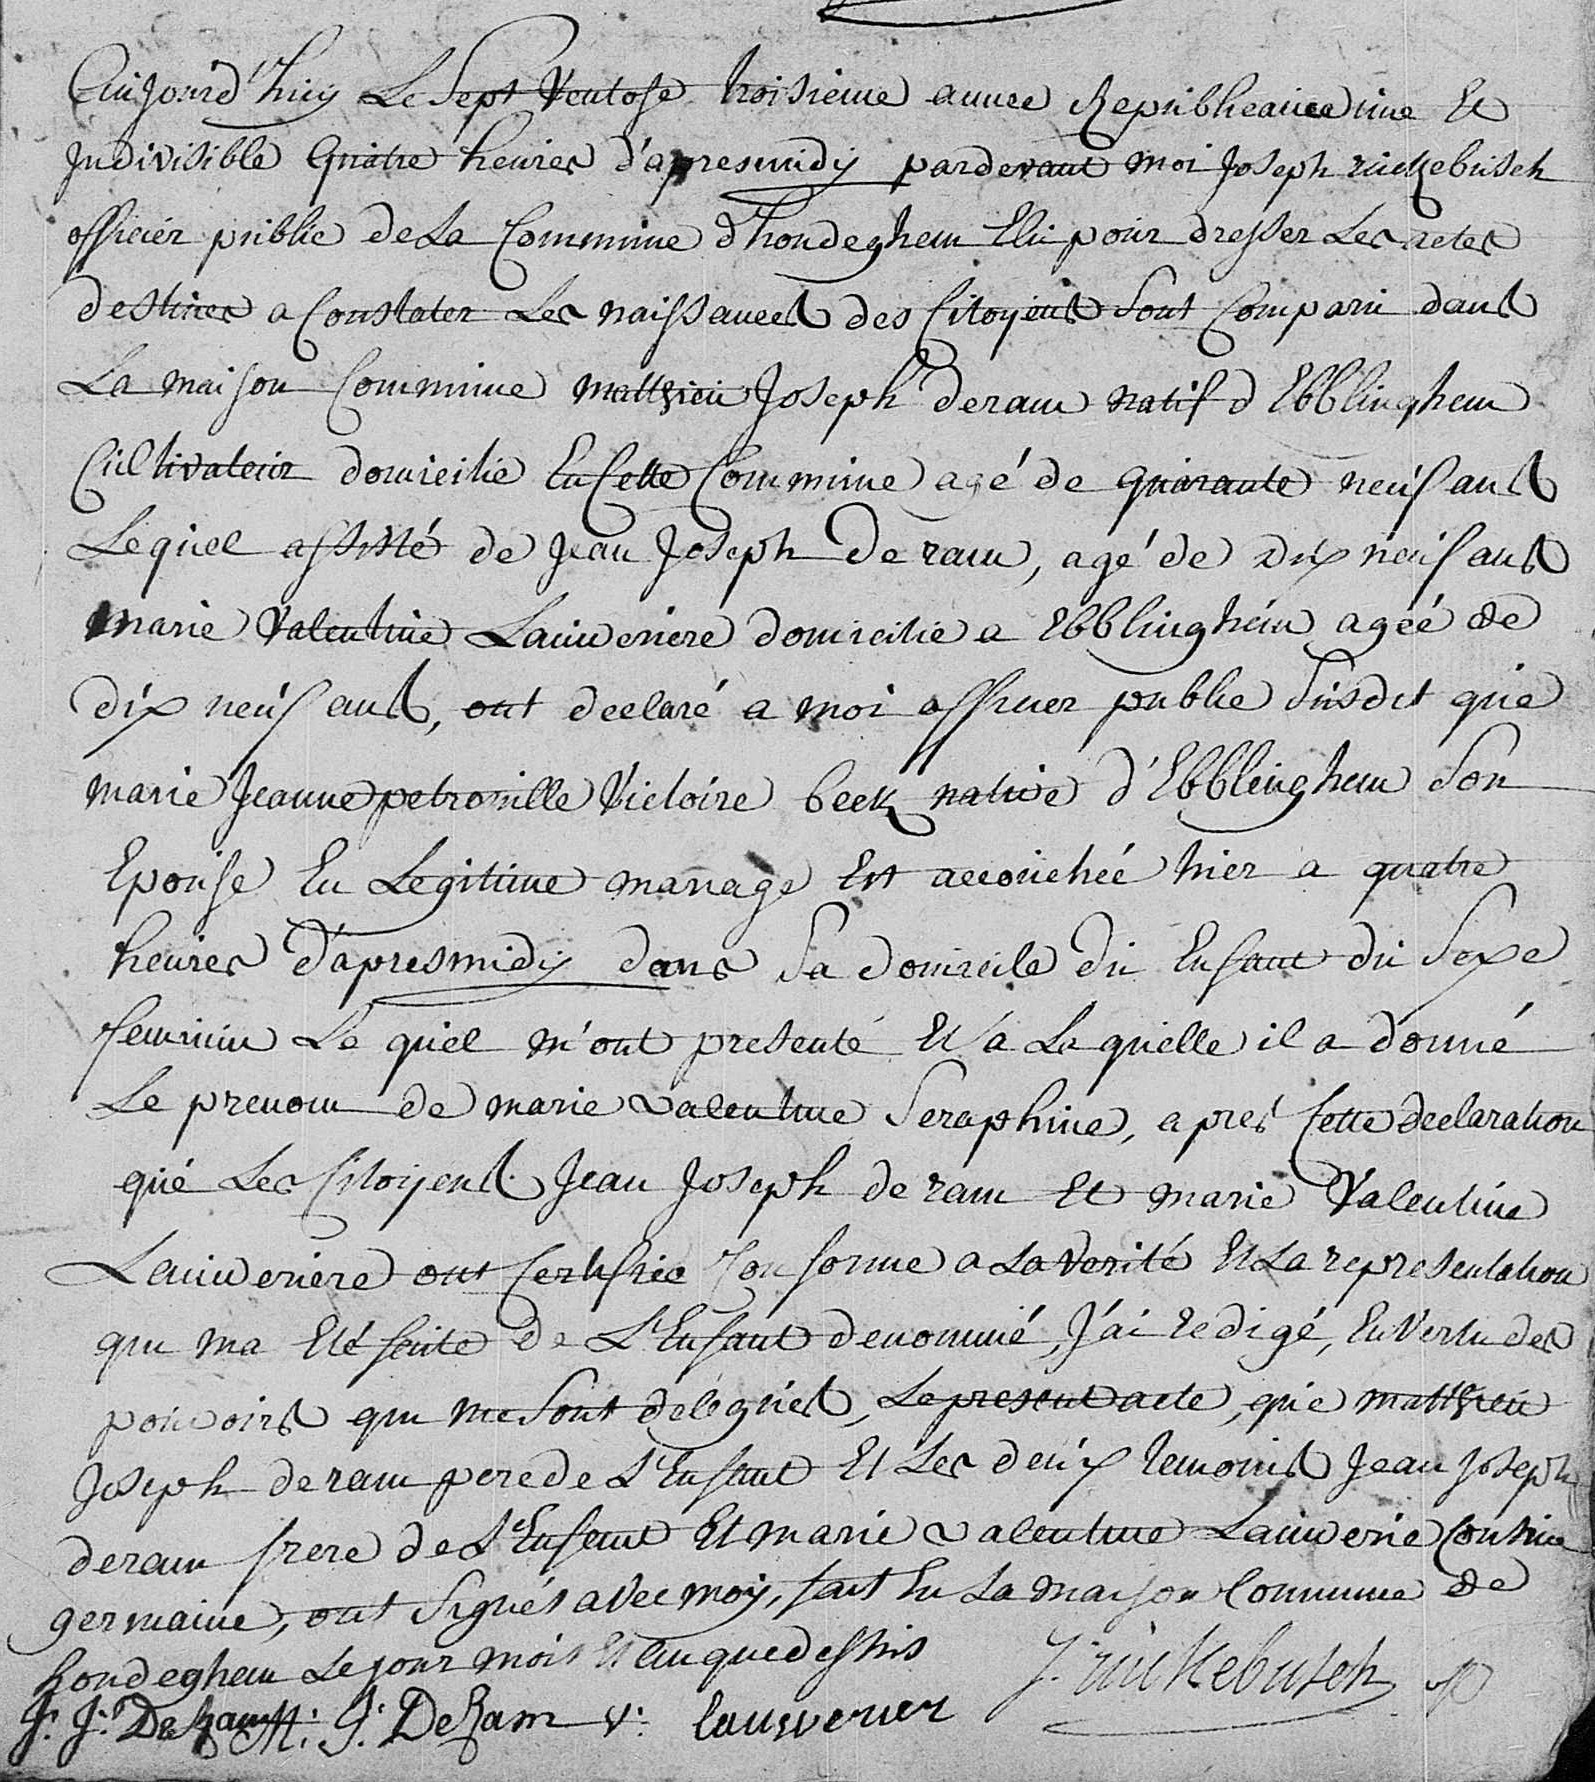 Aujourd'huy Le Sept Ventose troisieme année Republicaine une Et
Indivisible Quatre heures d'apresmidy pardevant moi Joseph ruckebusch
officier public de La Commune d'hondeghem Elu pour dresser Les actes
destines a Constater Les naissances des Citoyens Sont Comparu dans
La maison Commune matthieu Joseph deram natif d Ebblinghem
Cultivateur domicilie En Cette Commune agé de quarante neuf ans
Lequel assisté de Jean Joseph De ram, agé de dix neuf ans
marie Valentine Lauweriere domicilie a Ebblinghem ageé de
dix neuf ans, ont declaré a moi officier public Susdit que
marie Jeanne petronille Victoire beck native d'Ebblinghem Son
Epouse En Legitime mariage Est accouchée hier a quatre
heures d'apresmidy dans Sa domicile du Enfant du Sexe
feminin Le quel m'ont presenté Et a La quelle il a donné
Le prenom de marie valentine Seraphine, après Cette declaration
que Les Citoyens Jean Joseph de ram Et marie Valentine
Lauweriere ont Certifiée Conforme a La verité Et La representation
qui ma Eté faite de L'Enfant denommé, J'ai redigé, En Vertu des
pouvoirs qui me Sont delegués, Le present acte, que matthieu
Joseph deram pere de L'Enfant Et Les deux temoins Jean Joseph
deram frere de L'Enfant Et marie valentine Lauwerie Cousine
germaine, ont Signés avec moy, fait En La maison Commune de
hondeghem Le jour mois Et an que dessus
J: J:h DeRam M: J: DeRam V: lauwerier J: ruckebusch